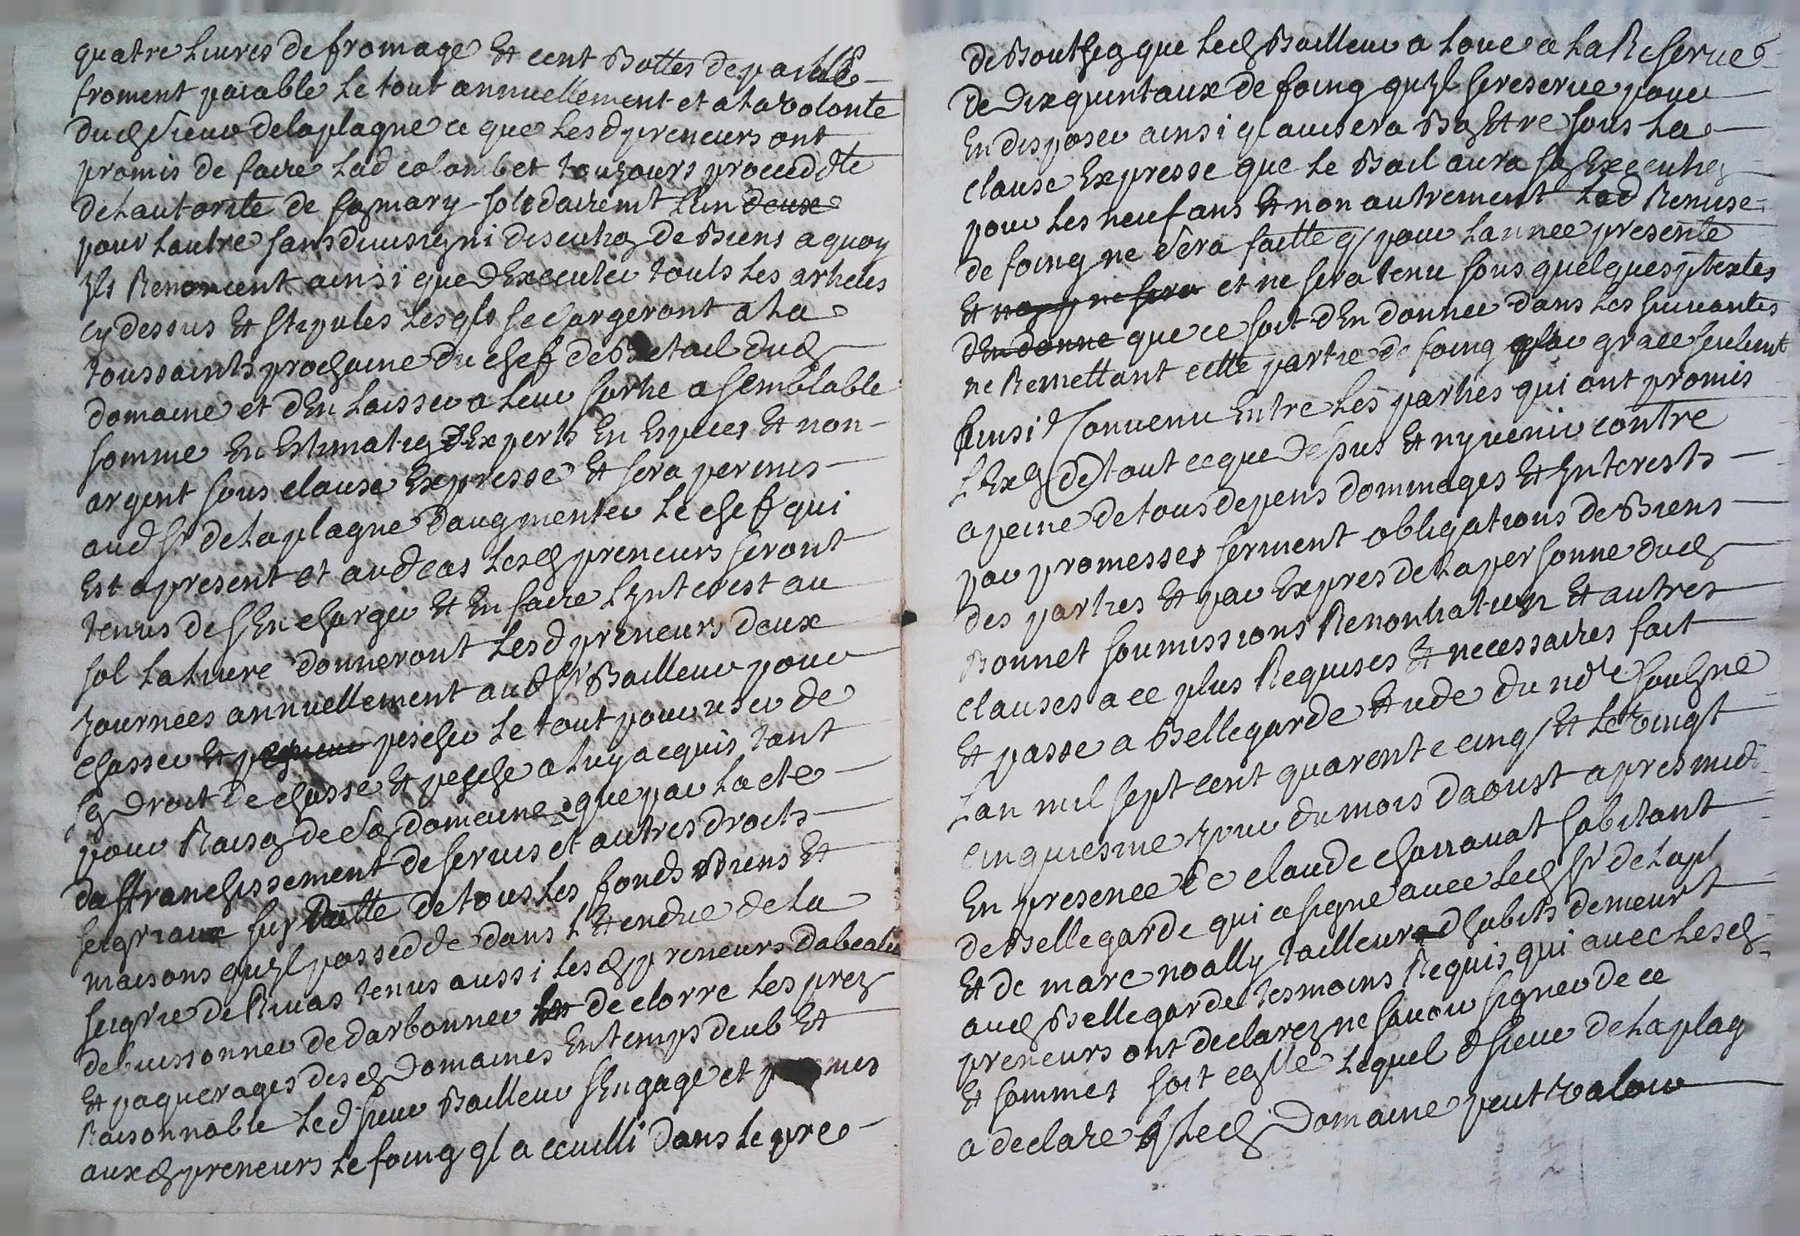 quatre Livres de fromage Et cent Bottes de paille
froment paiable Le tout annuellement et a La volonte
dud Sieur de laplagne ce que Lesd preneurs ont
promis de faire Lad colombet toujours procedde
de Lautorite de son mary solidairemt Lun deux
pour Lautre sans divisiog ni discutiog de Biens a quoy
Ils Renoncent ainsi que dExecuter touts Les articles
cy dessus Et stipules Lesqls se chargeront a La
toussaints prochaine du cheff de Betail dud
domaine et dEn Laisser a Leur sortie a semblable
somme En Estimatiog dExperts En Especes Et non
argent sous clause Expresse Et sera permis
aud Sr de Laplagne daugmenter Le cheff qui
Est a present et aud cas Lesd preneurs seront
tenus de sEn charger Et En faire LInterest au
sol La Livre donneront Lesd preneurs deux
journees annuellement aud Sr Bailleur pour
chasser Et pescher Le tout pour user de
sog Droit de chasse Et pesche a Luy acquis tant
pour Raisog de sog domaine que par Lacte
daffranchissement de servis et autres droits
seigriaux sur Datte de tous Les fonds Biens Et
maisons quIl possedde dans LEtendue de La
seigrie de Rivas tenus aussi Lesd preneurs dabealer
debuissonner de darbonner de clorre Les prez
Et paquerages desd Domaines En temps deub Et
Raisonnable Led sieur Bailleur sEngage et promis
auxd preneurs Le foing ql a ceuilli Dans Le pre
de Boutheog que Led Bailleur a Loue a La Reserve
de Dix quintaux de foing quIl se reserve pour
En disposer ainsi ql avisera Bog Etre sous La
clause Expresse que Le Bail aura sog Executiog
pour Les neuf ans Et non autrement Lad Remise
de foing ne sera faitte q pour Lannee presente
Et et ne sera tenu sous quelques ptextes
dEn donne que ce soit dEn donner dans Les suivantes
ne Remettant cette partie de foing q par grace seulemt
Ainsi Convenu Entre Les parties qui ont promis
LExog de tout ce que dessus Et ny venir contre
a peine de tous depens dommages Et Interests
par promesses serment obligations de Biens
des parties Et par Expres de La personne dud
Bonnet soumissions Renontiation Et autres
clauses a ce plus Requises Et necessaires fait
Et passe a Bellegarde Etude du nore soulsne
Lan mil sept cent quarente cinq Et Le vingt
cinquiesme jour du mois daoust apres midi
En presence de claude charravat habitant
de Bellegarde qui a signe avec Led Sr de Lapl
Et de marc noally tailleur dhabits demeurt
aud Bellegarde tesmoins Requis qui avec Lesd
preneurs ont declarez ne savoir signer de ce
Et sommes soit collé Lequel d sieur de Laplag
a declare q Led Domaine peut valoir